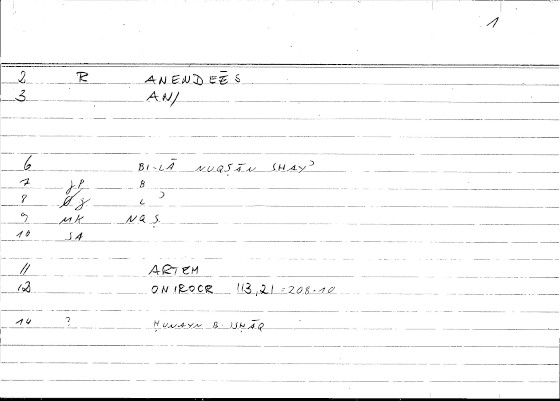 1
2 R ANENDEĒS
3 AN/
6 BI-LĀ NUQṢĀN SHAYʾ
7 JP B
8 L ʾ
9 MK NQṢ
10 SA
11 ARTEM
12 ONIROCR 113,21 = 208.10
14 ? ḤUNAYN B. ISḤĀQ